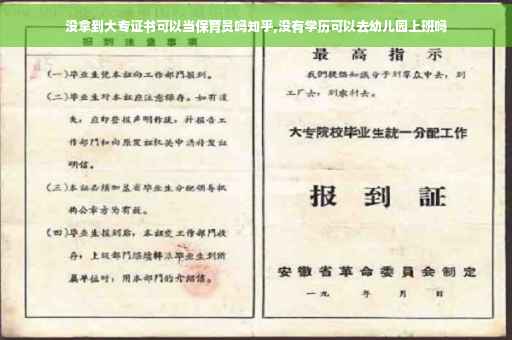 没拿到大专证书可以当保育员吗知乎,没有学历可以去幼儿园上班吗
报到注意事项
(一)毕业生凭本证向工作部门报到。
(二)毕业生对本证应注意保存。如有遗
失,应即登报声明作废,并报告工
作部门和向原发证机关申请补发证
明信。
(三)本证必须加盖省毕业生分配领导机
构公章方为有效。
(四)毕业生报到后,本证交工作部门收
存;上级部门继续转派毕业生到所
属单位时,用本部门的介绍信。
最高指示
我们提倡知识分子到群众中去,到
工厂去,到农村去。
大专院校毕业生統一分配工作
报到証
安徽省革命委員会制定
一九 年 月 日